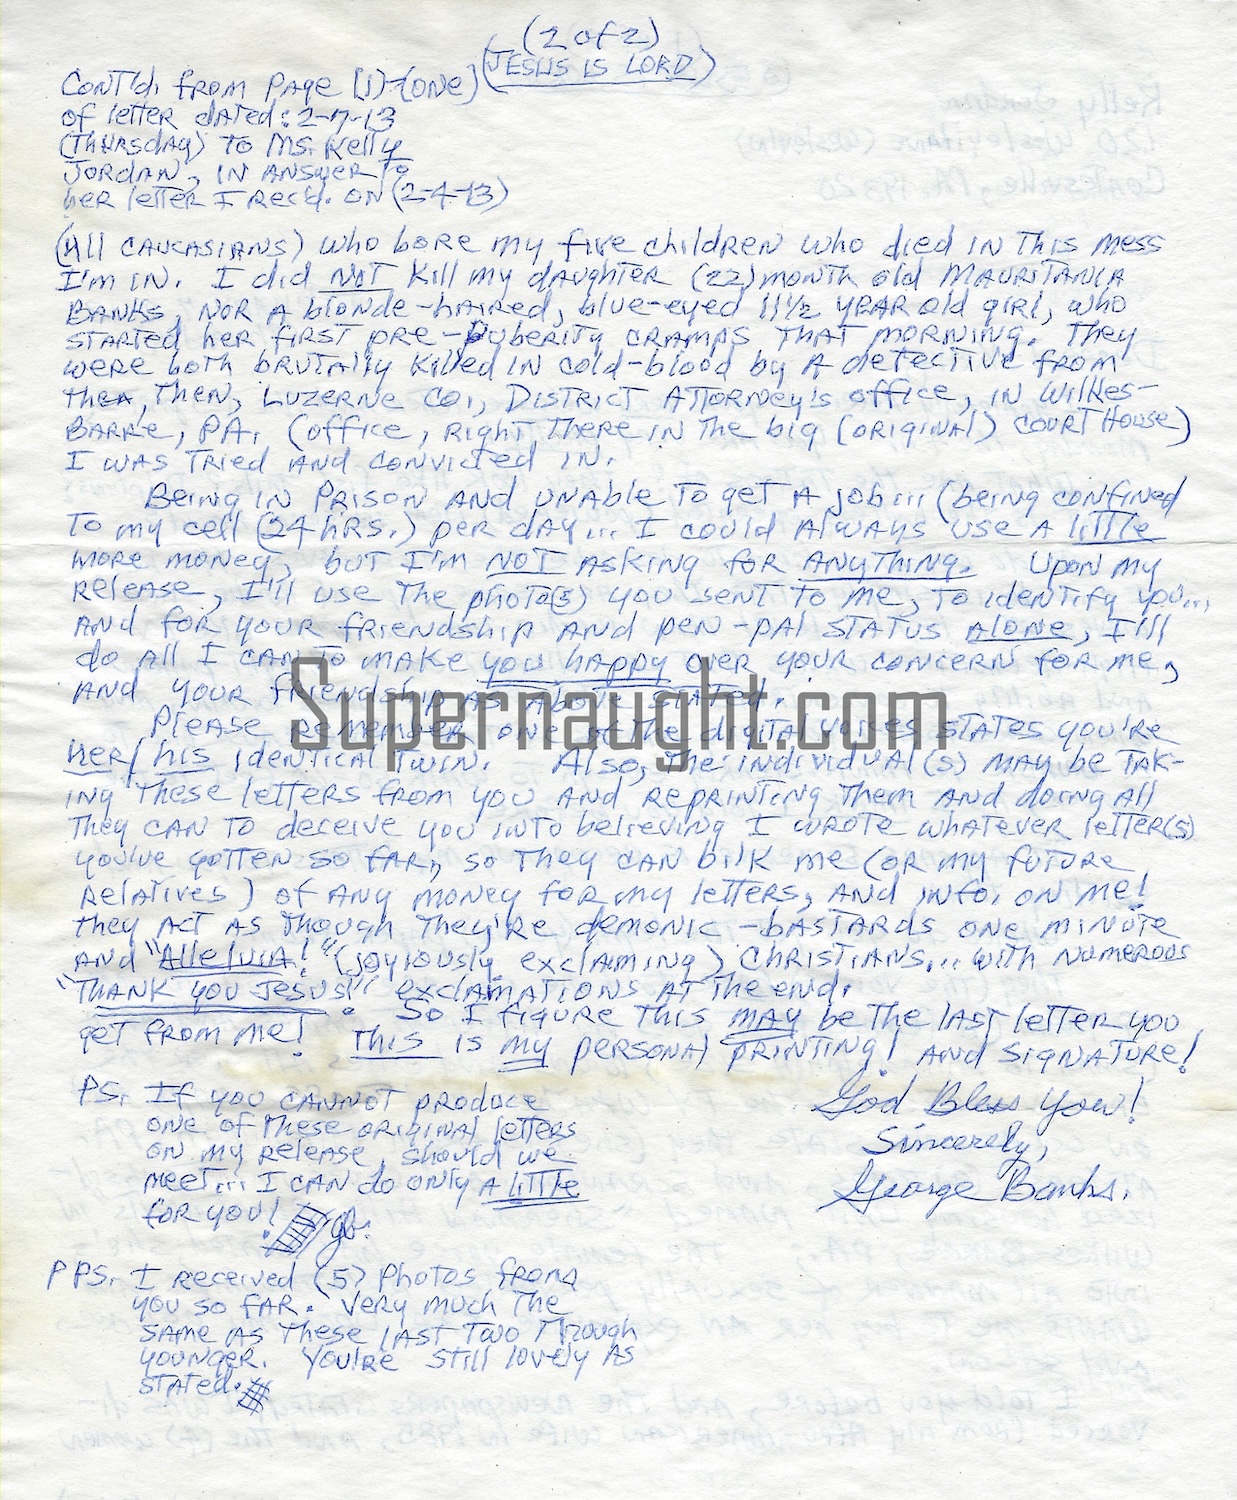 (2 of 2)
(JESUS IS LORD)
CONT'd. from PAGE [1]-(ONE)
of letter dated: 2-7-13
(THURSDAY) TO MS. Kelly
JORDAN, IN ANSWER TO
her letter I rec'd. ON (2-4-13)
(All CAUCASIANS) who bore my five children who died in This mess
I'm in. I did NOT kill my daughter (22) month old MAURITANIA
BANKS, NOR A blonde-haired, blue-eyed 11½ YEAR old girl, who
STARTED her first pre-puberity CRAMPS THAT MORNING. They
were both brutally killed IN cold-blood by A detective from
then, LUZERNE CO., DISTRICT ATTORNEY'S office, IN WILKES-
BARRE, PA. (office, right There IN The big (ORIGINAL) COURTHOUSE)
I WAS TRIED AND CONVICTED IN.
Being IN PRISON AND UNABLE TO get A job... (being confined
TO my cell (24 HRS.) per day... I could AlwAys use A little
more money, but I'm NOT ASKING for ANYTHING. Upon my
release, I'll use The photo(s) you sent to me, to identify you...
AND for YOUR friendship AND pen-pAl STATUS Alone, I'll
do All I CAN TO MAKE you happy over your concern for me,
AND YOUR friendship AS Above STATED.
Please remember one of the digital voices STATES you're
her/his identical Twin. Also, The individual(s) may be TAK-
ING These letters from you AND REPRINTING Them AND doing All
They CAN TO deceive you INTO believing I wrote whatever letter(s)
you've gotten so far, so They can bilk me (OR my future
relatives) of ANY money for my letters, AND info. on me!
They ACT AS Though They're demonic-bastards one minute
AND "Alleluia!" (joyiously exclaiming) CHRISTIANS... with numerous
"THANK YOU JESUS!" exclAMATIONS AT The end.
So I figure This MAY be The last letter you
get from me! THIS is my personal printing! AND SIGNATURE!
PS. If you CANNOT produce
one of These original letters
on my release, should we
meet... I CAN do only A little
for you! gb.
God Bless You!
Sincerely,
George Banks.
PPS. I received (5) photos from
you so far. Very much The
SAME AS These last Two Though
younger. You're still lovely AS
STATED.
Supernaught.com